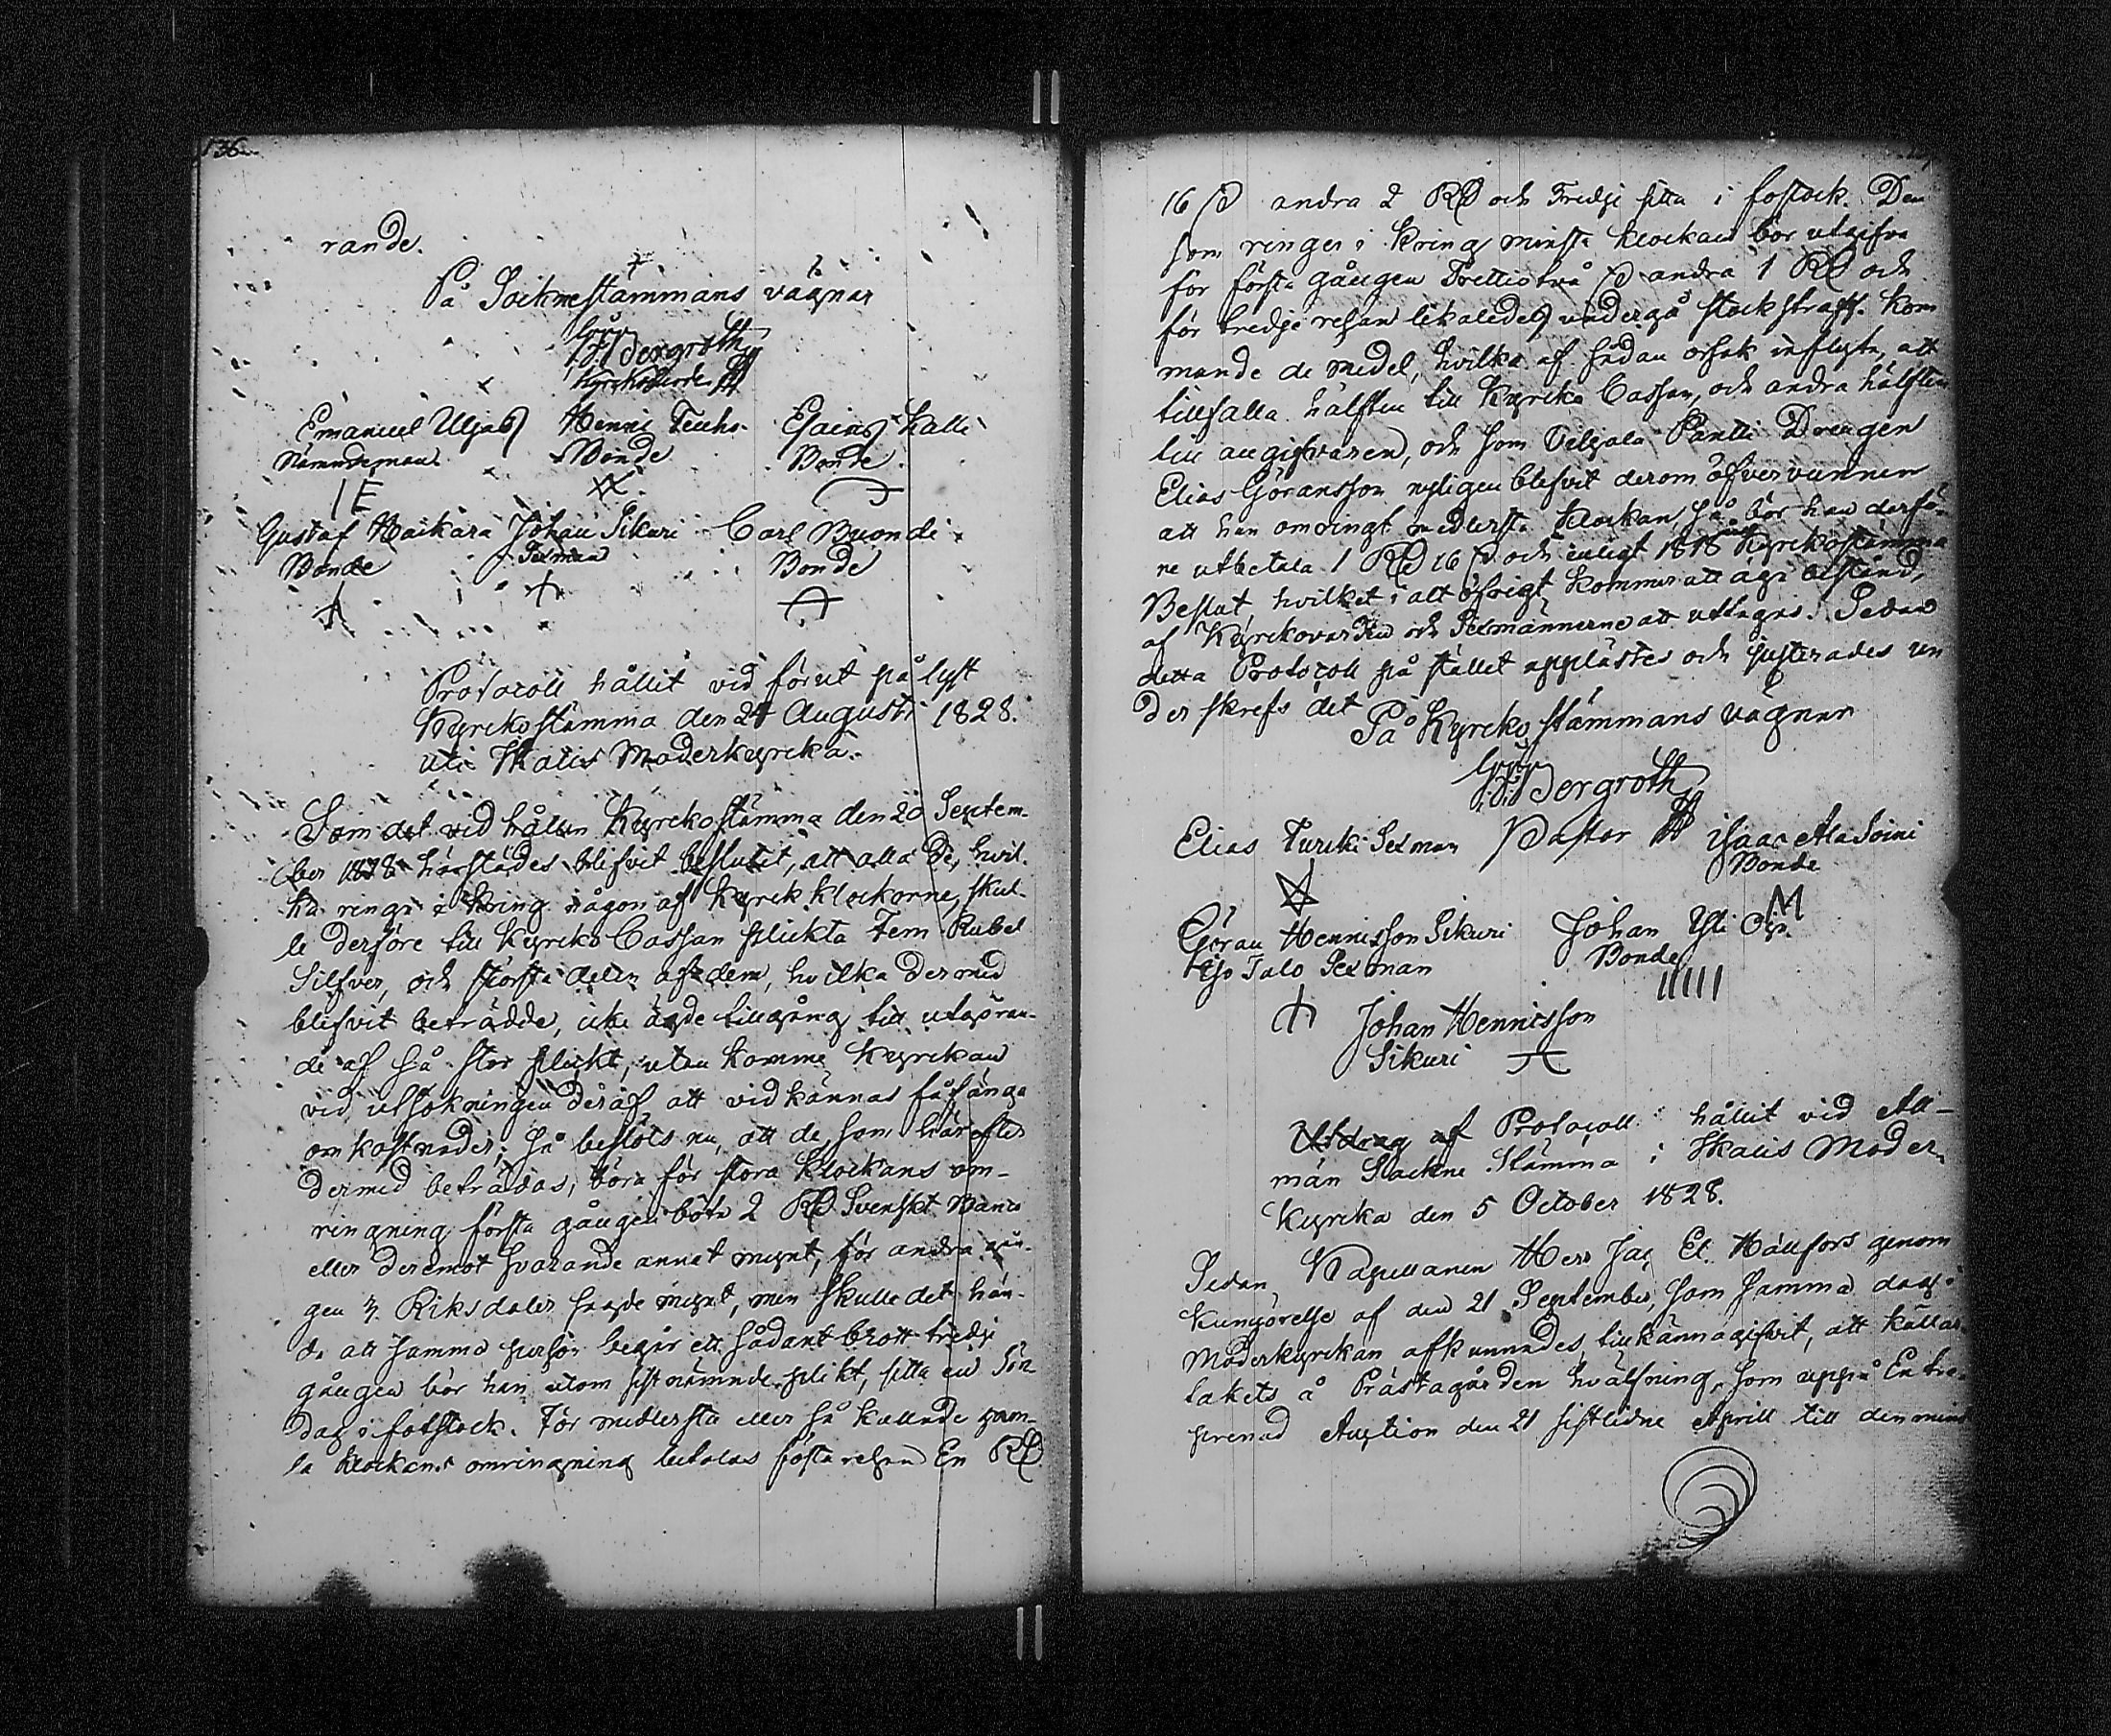 136.
rande.
På Socknestämmans vägnar
G. F. Bergroth
Kyrkoherde
Emanuel Uljas Henric Teuho Esaias Kalli
Nämndeman Bonde Bonde
Gustaf Haikara Johan Sikuri Carl Buondi
Bonde Sexman Bonde
Protocoll hållit vid förut pålyst
Kyrkostämma den 24 Augusti 1828.
uti Ikalis Moderkyrka.
Som det vid hållen Kyrkostämma den 20 Septem-
ber 1818 härstädes blifvit beslutit, att alla de, hvil-
ka ringa i kring någon af Kyrkklockorne, skul-
le derföre till Kyrko Cassan plickta Fem Rubel
Silfver, och största delen af dem, hvilka dermed
blifvit beträdde, icke ägde tillgång till utgöran-
de af så stor plickt, utan komme Kyrkan
vid utsökningen deraf att vidkännas fåfänga
omkostnader; så beslöts nu, att de som härefter
dermed beträdas, böra för stora Klockans om-
ringning första gången böta 2 RD Svenskt Banco
eller deremot svarande annat mynt, för andra gån-
gen 3 Riksdaler sagde mynt, men skulle det hän-
da att samma person begår ett sådant brott tredje
gången bör han utom sistnämnde plikt, sitta en Sön-
dag i fotstock. För medlersta eller så kallade gam-
la Klockans omringning betalas första resan En RD
16 s andra 2 RD och Tredje sitta i fostock. Den
som ringer i kring minsta klockan bör utgifva
för första gången Trettiotvå s andra 1 RD och
för tredje resan likaledes undergå stockstraff. Kom
mande de medel, hvilka af sådan orsak inflyta, att
tillfalla hälften till Kyrko Cassan, och andra hälften
till angifvaren, och som Veljala Pantti Drengen
Elias Göransson nyligen blifvit derom öfvervunnen
att han omringt medlersta Klockan, så bör han derfö-
re utbetala 1 RD 16 s och enligt 1818 Kyrkostämma
Beslut hvilket i alt öfrigt kommer att äga bestånd,
af Kyrkovärden och Sexmännerne att uttagas. Sedan
detta Protocoll på stället upplästes och justerades un
derskrefs det
På Kyrko stämmans vägnar
G. F. Bergroth
Elias Turcki Sexman Pastor Isaac Ala Soini
Bonde
Göran Hennisson Sikuri Johan Yli
Sexman Bonde
Johan Hennisson
Sikuri
Utdrag af Protocoll hållit vid All-
män Sockne Stämma i Ikalis Moder
Kyrka den 5 October 1828.
Sedan Capellanen Herr Jac. El. Hällfors genom
Kungörelse af den 21 September, som samma dag i
Moderkyrkan afkunnades, tillkännagifvit, att källar
takets å Prästagården hvälfning, som uppå Entre-
prenad Auction den 21 sistlidne Aprill till den minst